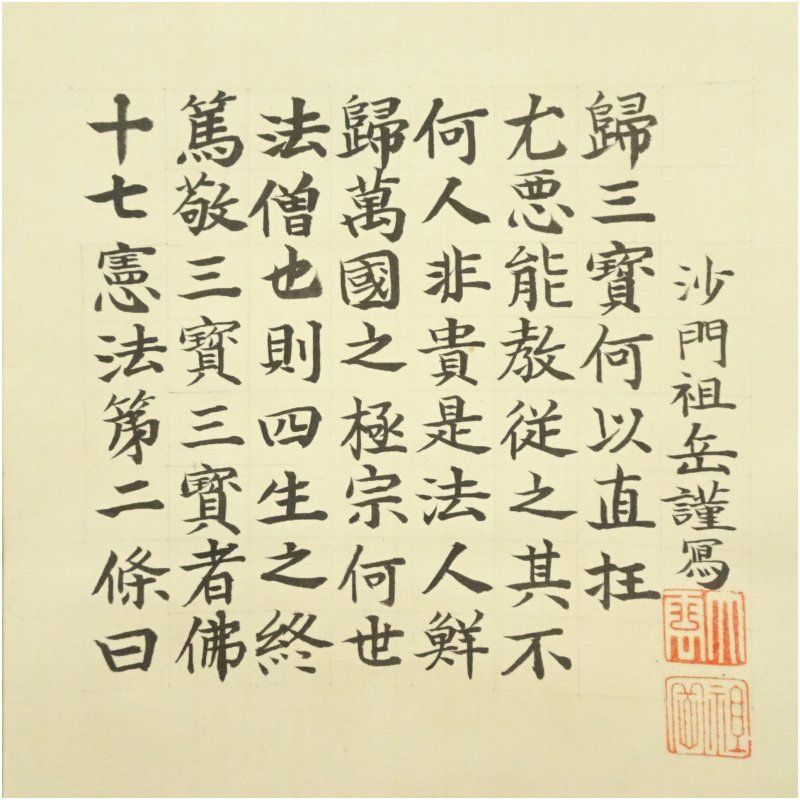 十七憲法第二條曰
篤敬三寶三寶者佛
法僧也則四生之終
歸萬國之極宗何世
何人非貴是法人鮮
尤悪能教從之其不
歸三寶何以直抂
沙門祖岳謹寫